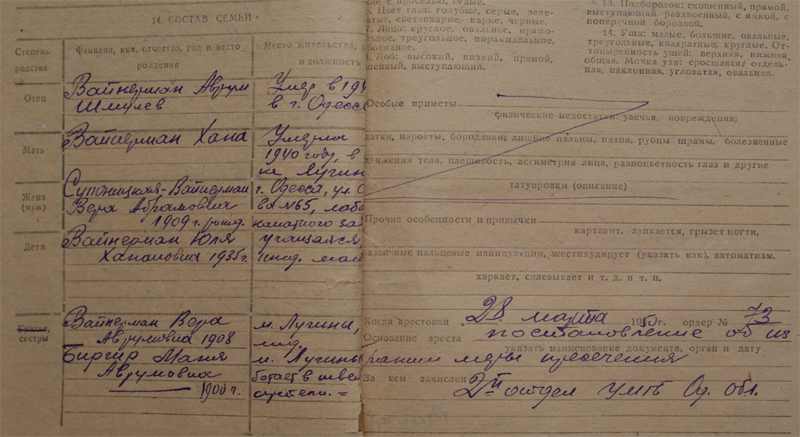 14. СОСТАВ СЕМЬИ
Степень родства
Фамилия, имя, отчество, год и место рождения
Место жительства,
и должность
Отец
Вайнерман Аврум
Шмулев
Умер в 194
в г. Одесс
Мать
Вайнерман Хана
Умерла
1940 году, в
м. Лугин
Жена (муж)
Супоницкая-Вайнерман
Вера Абрамовна
1909 г. рожд.
г. Одесса, ул. С
№65,
канатного за
Дети
Вайнерман Юля
Ханановна 1935г.
учащаяся
сестры
Вайнерман Вера
Аврумовна 1908
м. Лугины,
Биргир Мания
Аврумовна
1900 г.
м. Лугины
ботает в швей
артели. =
с проседью, седые.
Цвет глаз: голубые, серые, зеле-
светлокарие, карие, черные.
7. Лицо: круглое, овальное,
треугольное, пирамидальное,
Лоб: высокий, низкий, прямой,
выступающий.
13. Подбородок: скошенный, прямой,
выступающий, раздвоенный, с ямкой, с
поперечной бороздой.
14. Уши: малые, большие, овальные,
треугольные, квадратные, круглые. От-
топыренность ушей: верхняя, нижняя,
общая. Мочка уха: сросшаяся, отдель-
ная, наклонная, угловатая, овальная.
Особые приметы
физические недостатки, увечья, повреждения;
наросты, бородавки, лишние пальцы, пятна, рубцы, шрамы, болезненные
движения тела, плешивость, ассиметрия лица, разноцветность глаз и другие
татуировки (описание)
Прочие особенности и привычки
картавит, заикается, грызет ногти,
различные пальцевые манипуляции, жестикулирует (указать как), автоматизм,
харкает, сплевывает и т. д. и т. п.
Когда арестован 28 марта 1950г. ордер № 73
Основание ареста постановление об из
указать наименование документа, орган и дату
рании меры пресечения
За кем зачислен 2й отдел УМГБ Од. обл.